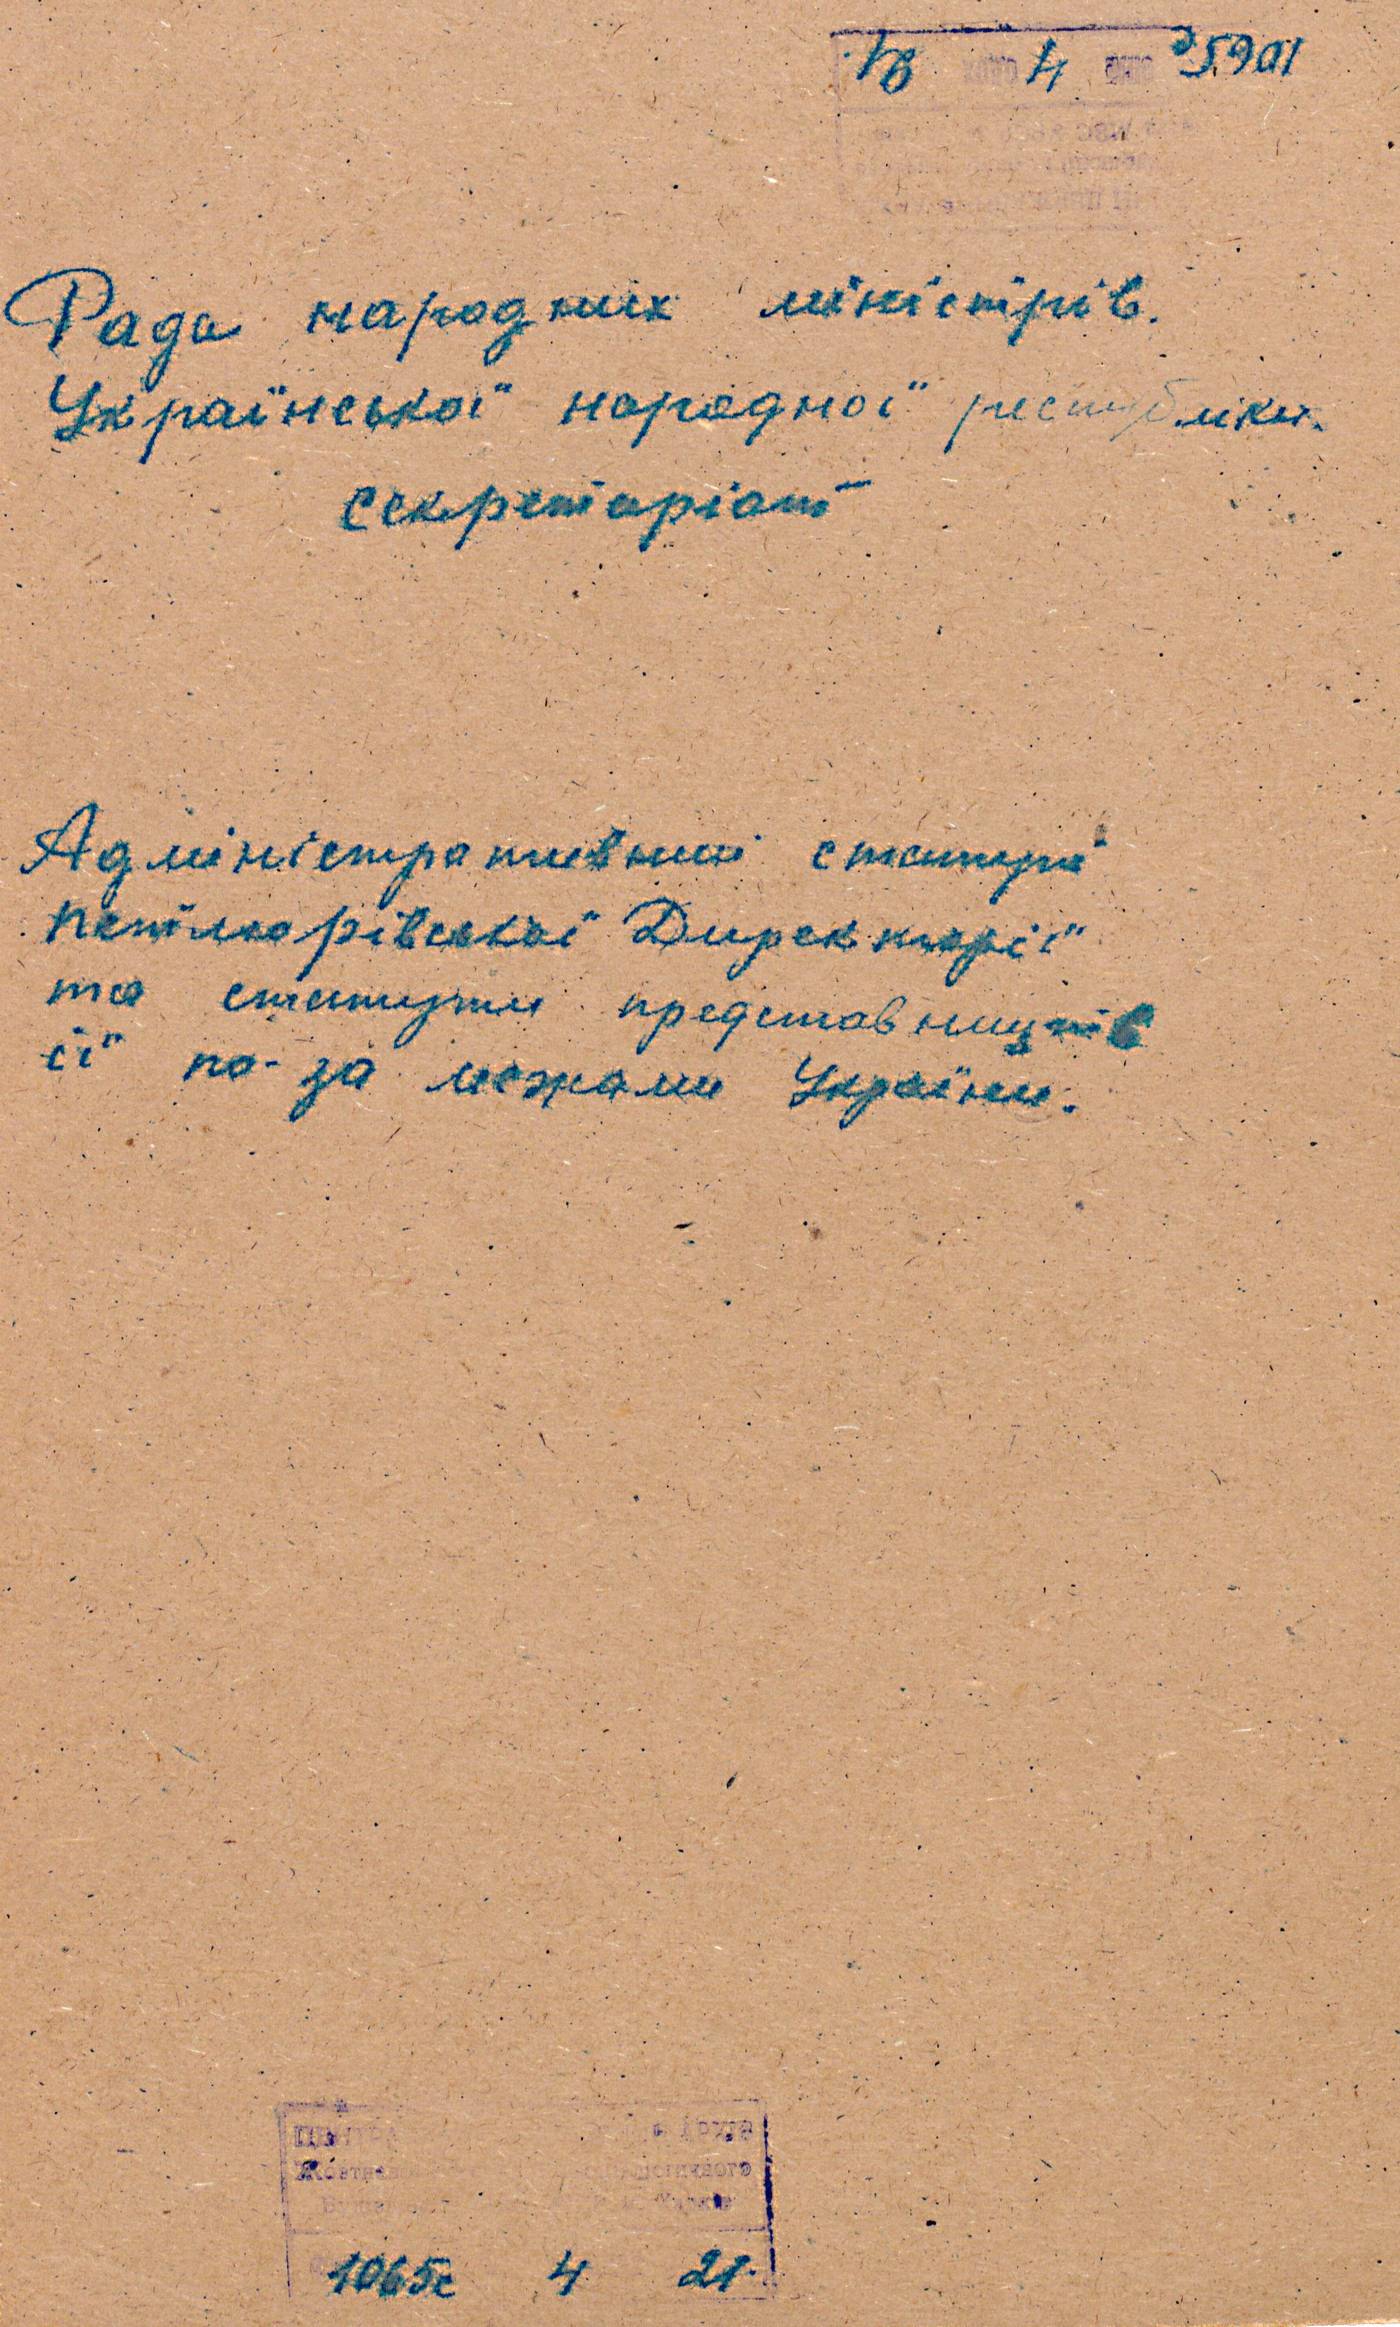 1065с 4 21.
Рада народних міністрів.
Української народної республіки.
Секретаріат
Адміністративний статут
петлюрівської Директорії
та статути представництв
її по-за межами України.
1065с 4 21.